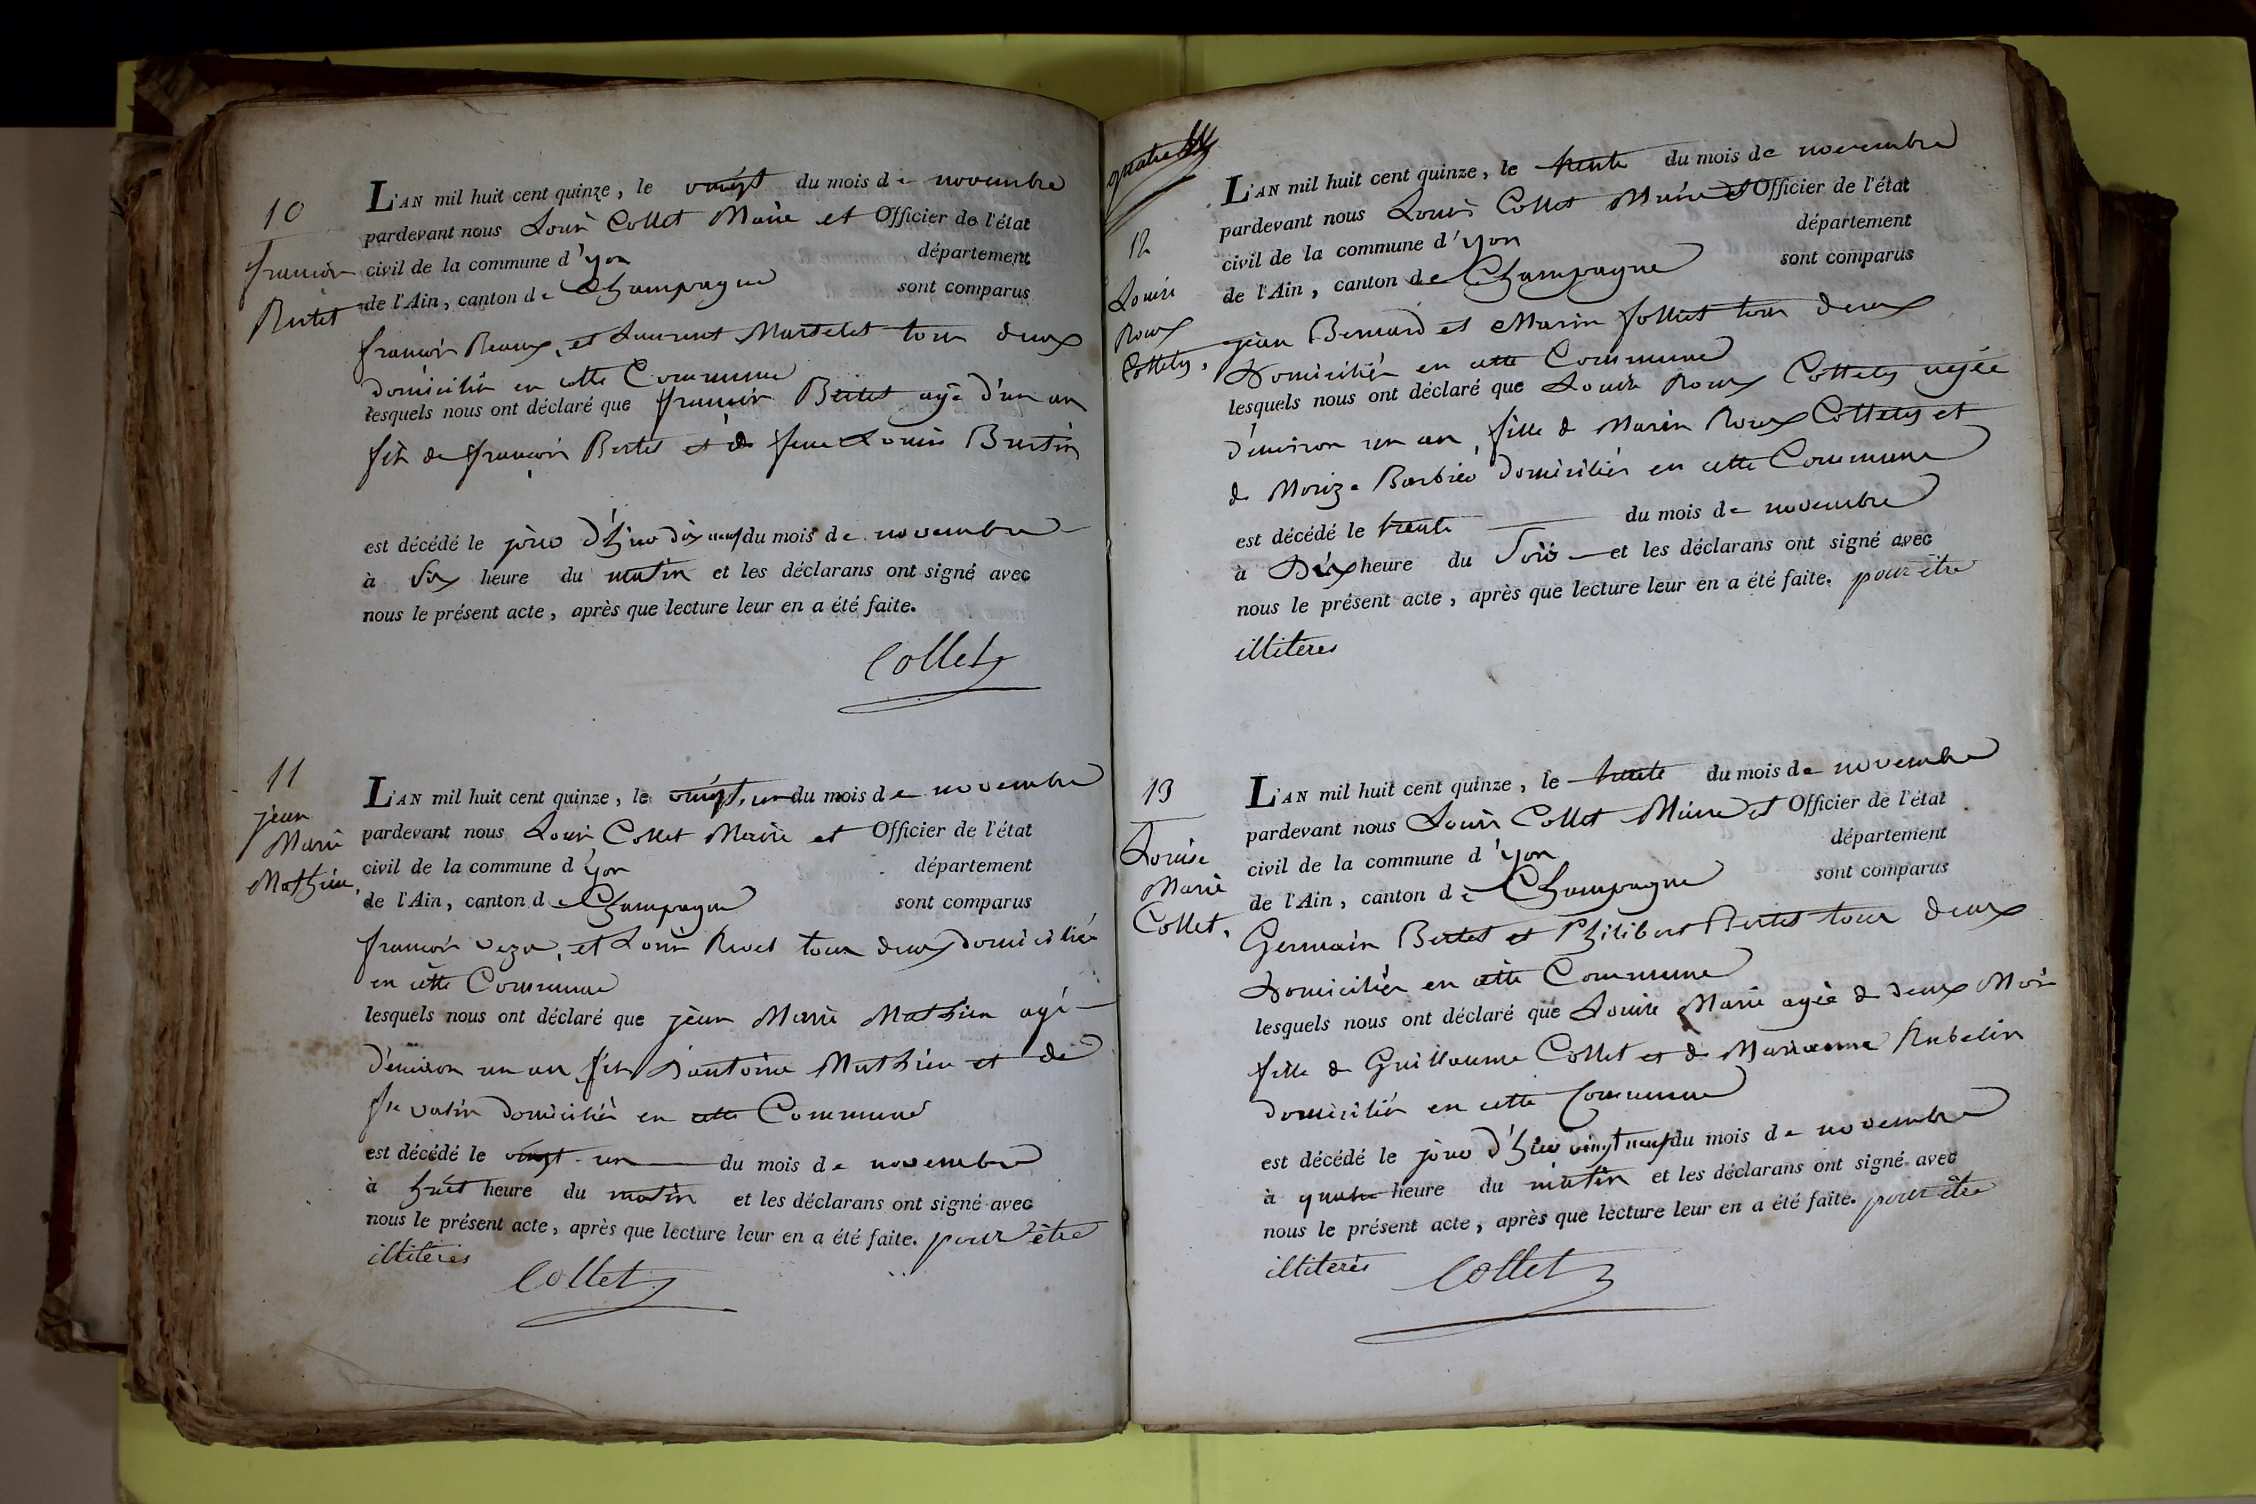 10
françois
Bertet
L'AN mil huit cent quinze, le vingt du mois de novembre
pardevant nous Louis Collet Maire et Officier de l'état
civil de la commune d'yon département
de l'Ain, canton de Champagne sont comparus
françois Reaux, et Laurent Martelet tous deux
domiciliés en cette Commune
lesquels nous ont déclaré que françois Bertet agé d'un an
fils de françois Bertet et de feue Louise Burtin
est décédé le jour d'hier dix neuf du mois de novembre
à Six heure du matin et les déclarans ont signé avec
nous le présent acte, après que lecture leur en a été faite.
Collet
11
jean
Marie
Mathieu,
L'AN mil huit cent quinze, le vingt, un du mois de novembre
pardevant nous Louis Collet Maire et Officier de l'état
civil de la commune d yon département
de l'Ain, canton de Champagne sont comparus
françois et Louis tous deux domiciliés
en cette Commune
lesquels nous ont déclaré que jean Marie Mathieu agé
d'environ un an, fils d'antoine Mathieu et de
domiciliés en cette Commune
est décédé le vingt-un du mois de novembre
à huit heure du matin et les déclarans ont signé avec
nous le présent acte, après que lecture leur en a été faite. pour être
illiteres
Collet
quatre
12
Louise
Roux
Colletty,
L'AN mil huit cent quinze, le trente du mois de novembre
pardevant nous Louis Collet Maire et Officier de l'état
civil de la commune d'yon département
de l'Ain, canton de Champagne sont comparus
jean Bernard et Marin folliet tous deux
Domiciliés en cette Commune
lesquels nous ont déclaré que Louise Roux agée
d'environ un an, fille de Marin Roux et
de Barbier domiciliés en cette Commune
est décédé le trente du mois de novembre
à Dix heure du Soir et les déclarans ont signé avec
nous le présent acte, après que lecture leur en a été faite. pour être
illiteres
13
Louise
Marie
Collet,
L'AN mil huit cent quinze, le trente du mois de novembre
pardevant nous Louis Collet Maire et Officier de l'état
civil de la commune d'yon département
de l'Ain, canton de Champagne sont comparus
Germain Bertet et Philibert Bertet tous deux
Domiciliés en cette Commune
lesquels nous ont déclaré que Louise Marie agée de deux Mois
fille de Guillaume Collet et de Marianne Rubelin
domiciliés en cette Commune
est décédé le jour d'hier vingt neuf du mois de novembre
à quatre heure du matin et les déclarans ont signé avec
nous le présent acte, après que lecture leur en a été faite. pour être
illiteres Collet